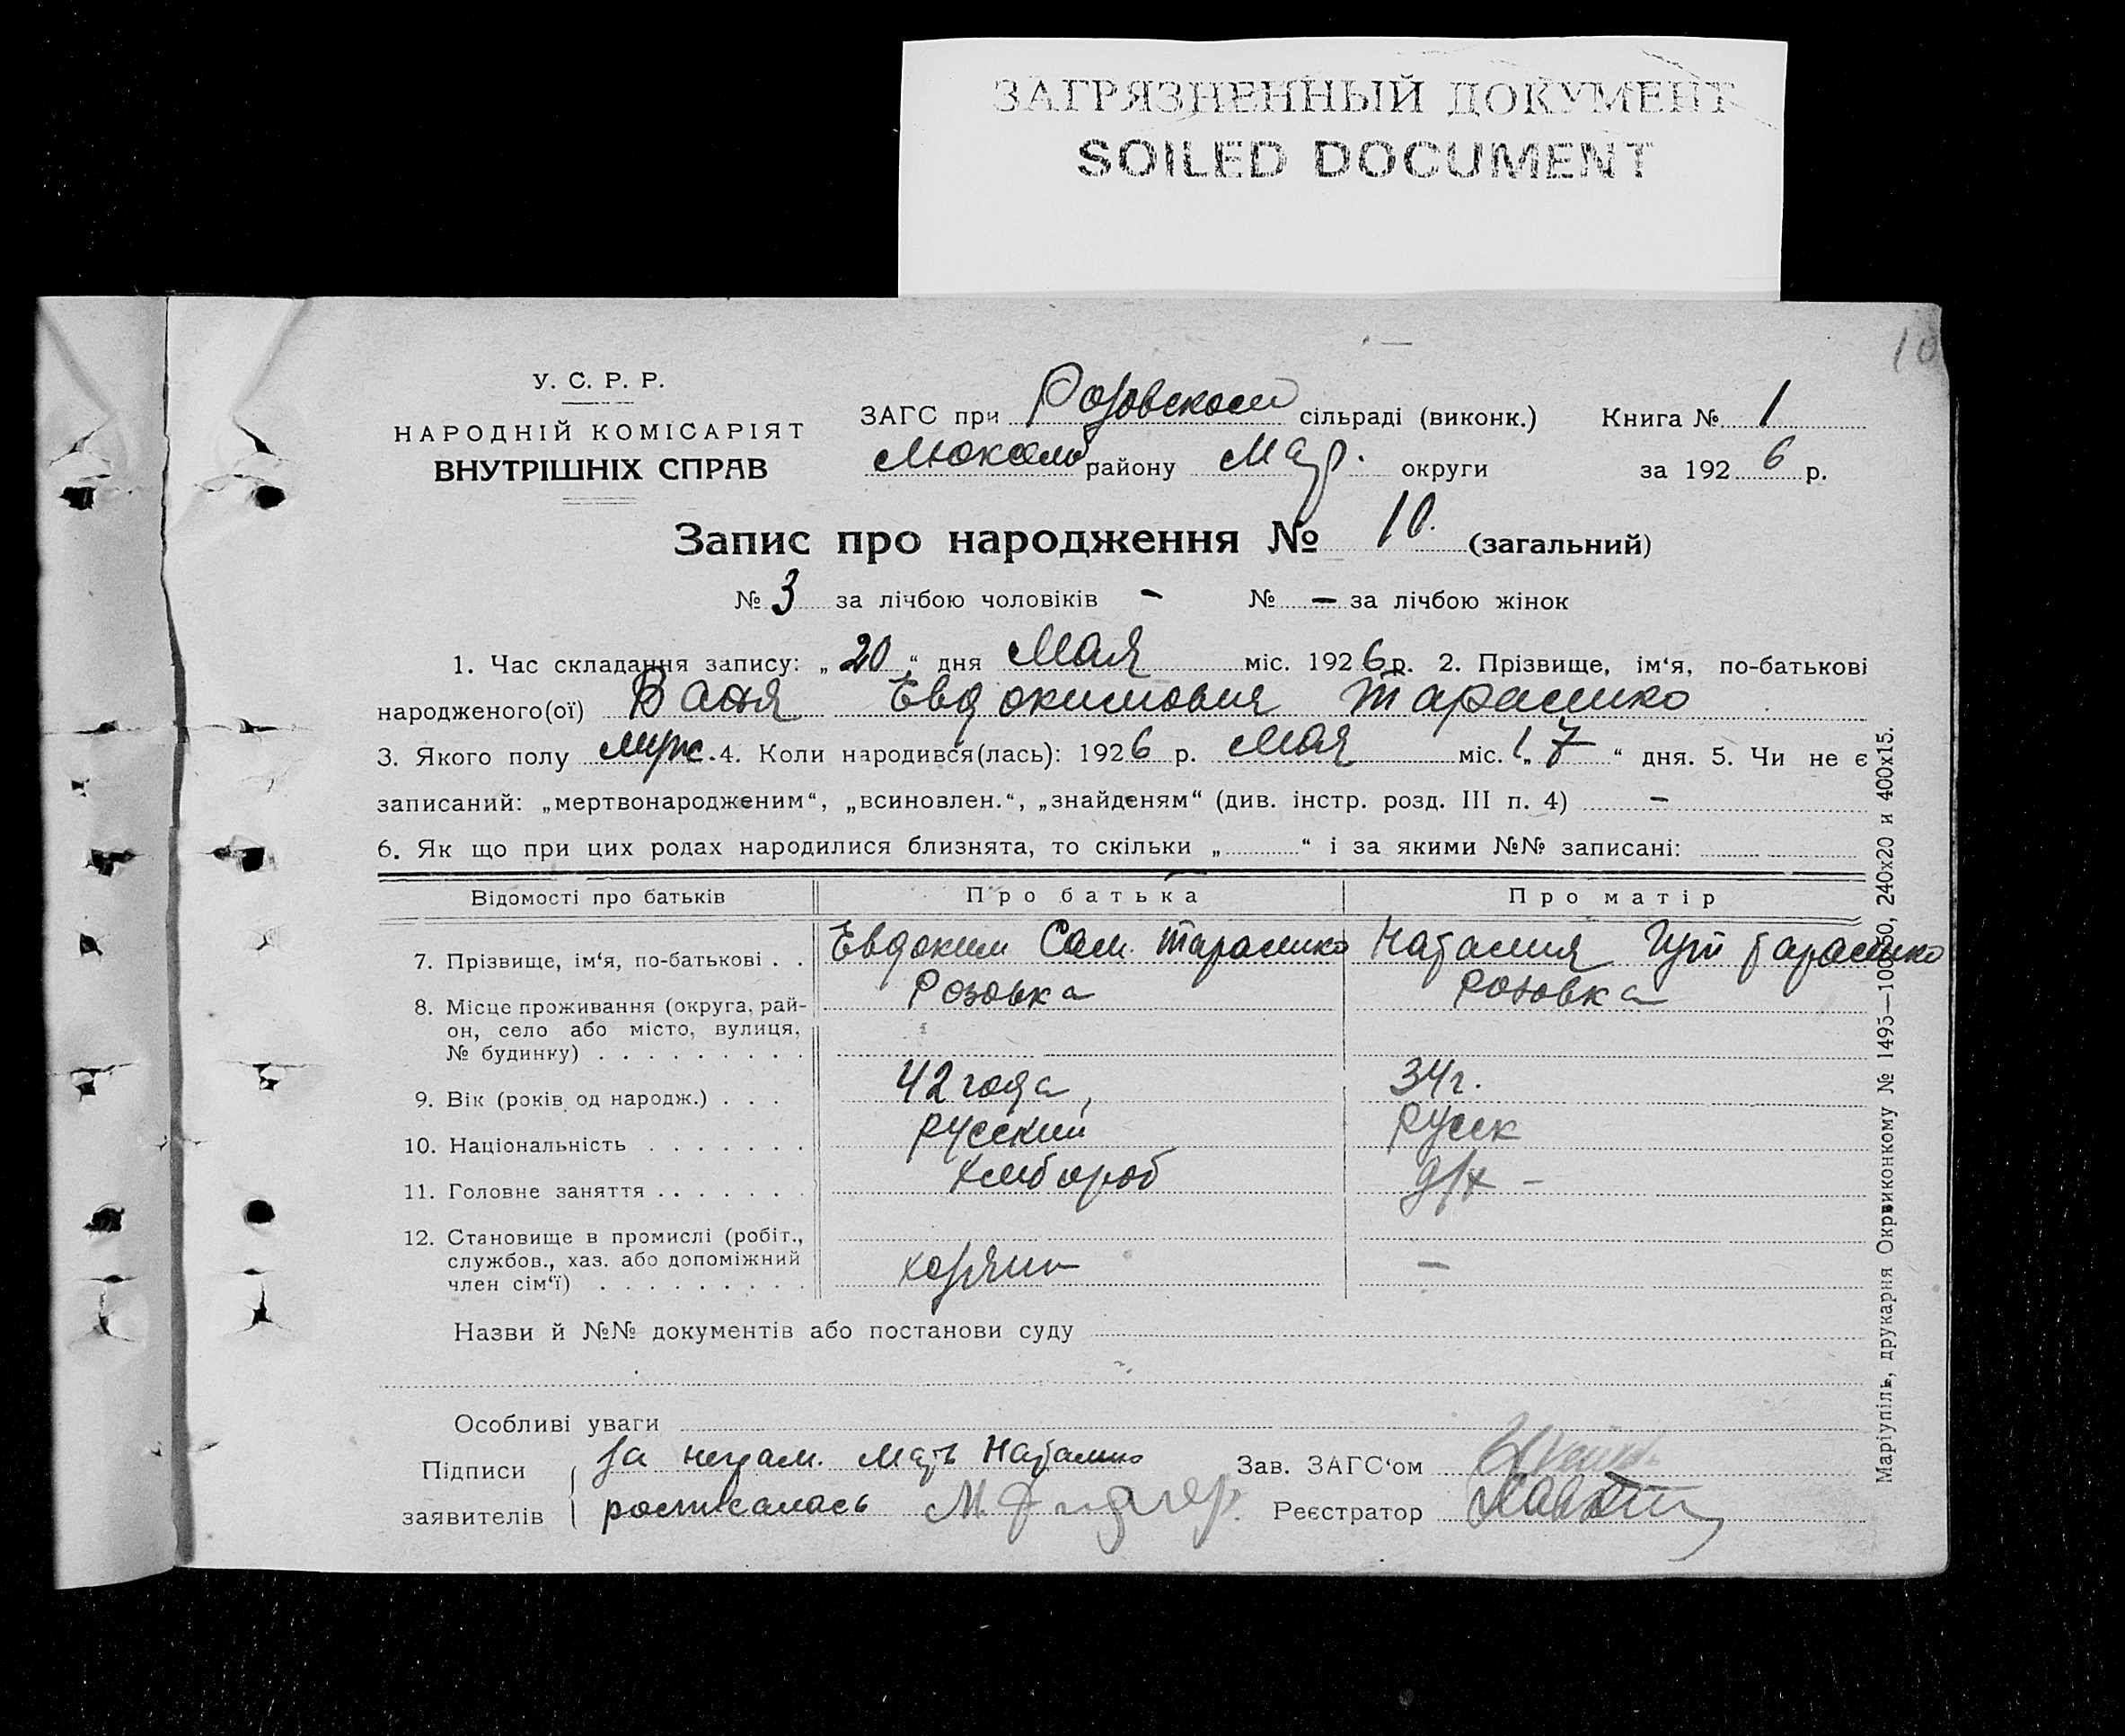 ЗАГРЯЗНЕННЫЙ ДОКУМЕНТ
SOILED DOCUMENT
10
У. С. Р. Р.
НАРОДНІЙ КОМІСАРІЯТ
ВНУТРІШНІХ СПРАВ
ЗАГС при Розовском сільраді (виконк.) Книга № 1
району Мар. округи за 1926 р.
Запис про народження № 10. (загальний)
№ 3 за лічбою чоловіків - № - за лічбою жінок
1. Час складання запису: „20“ дня Мая міс. 1926 р. 2. Прізвище, ім‘я, по-батькові
народженого(ої) Ваня Евдокимовия
3. Якого полу муж. 4. Коли народився(лась): 1926 р. Мая міс. „17“ дня. 5. Чи не є
записаний: „мертвонародженим“, „всиновлен.“, „знайденям“ (див. інстр. розд. III п. 4) -
6. Як що при цих родах народилися близнята, то скільки „ “ і за якими №№ записані:
Відомості про батьків Про батька Про матір
7. Прізвище, ім‘я, по-батькові . . Евдоким Сам. Наталия
8. Місце проживання (округа, рай- Розовка Розовка
он, село або місто, вулиця,
№ будинку) . . . . . . . . .
9. Вік (років од народж.) . . . 42 года, 34 г.
10. Національність . . . . . . . русский русск
11. Головне заняття . . . . . . . хлибороб д/х -
12. Становище в промислі (робіт.,
службов., хаз. або допоміжний хозяин -
член сім‘ї) . . . . . . . . .
Назви й №№ документів або постанови суду
Особливі уваги
Підписи За неграм. Мать Наталию Зав. ЗАГС‘ом
заявителів росписалась Реєстратор
Маріупіль, друкарня Окрвиконкому № 1495—100×50, 240х20 и 400х15.